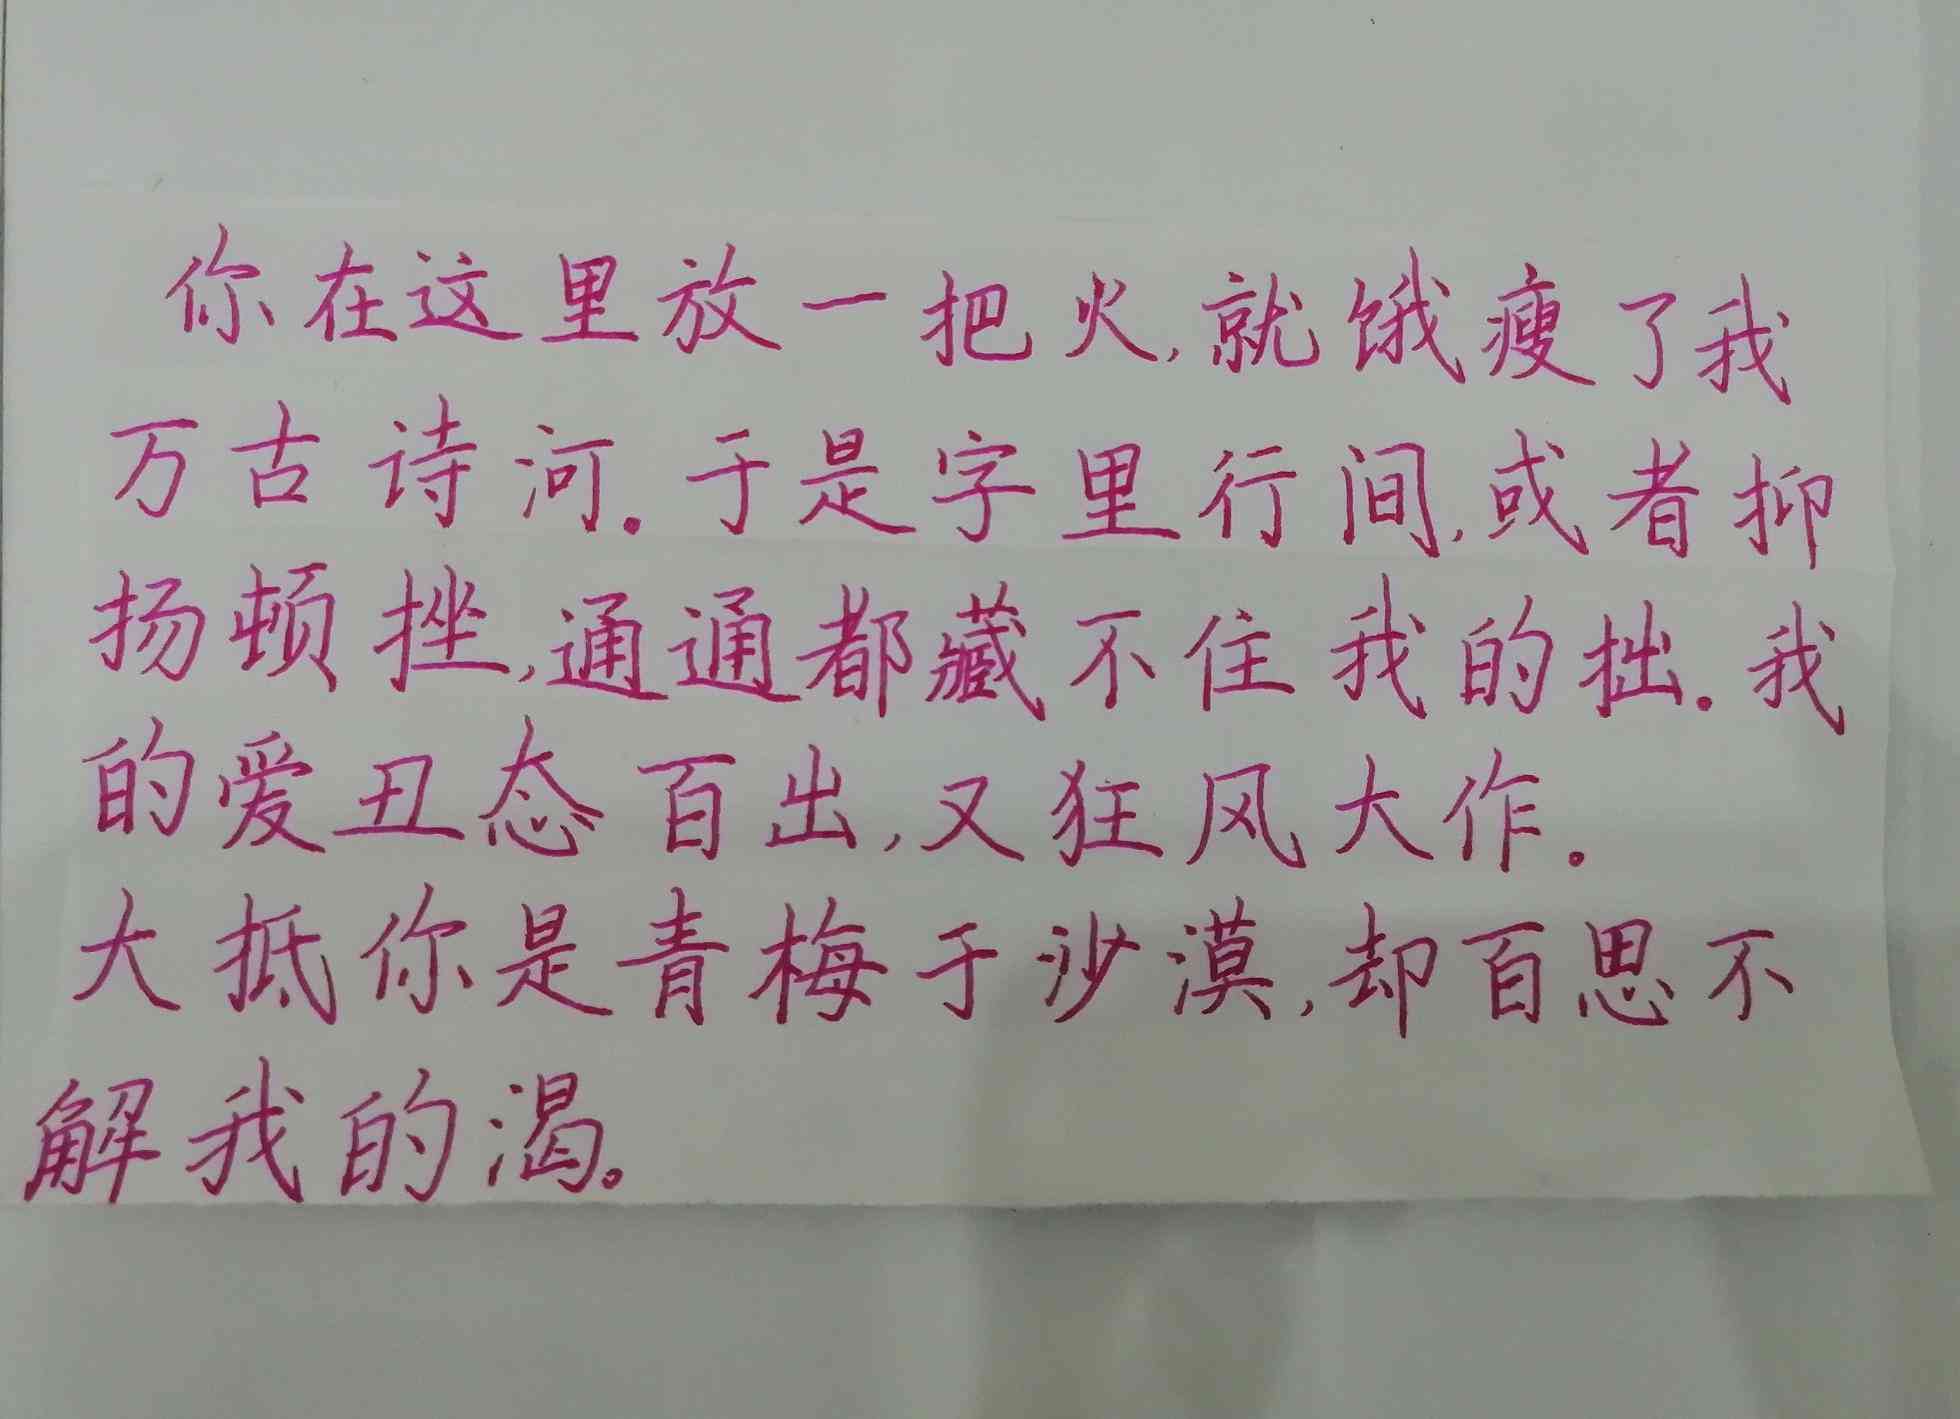 你在这里放一把火,就饿瘦了我
万古诗河.于是字里行间,或者抑
扬顿挫,通通都藏不住我的拙.我
的爱丑态百出,又狂风大作.
大抵你是青梅于沙漠,却百思不
解我的渴。